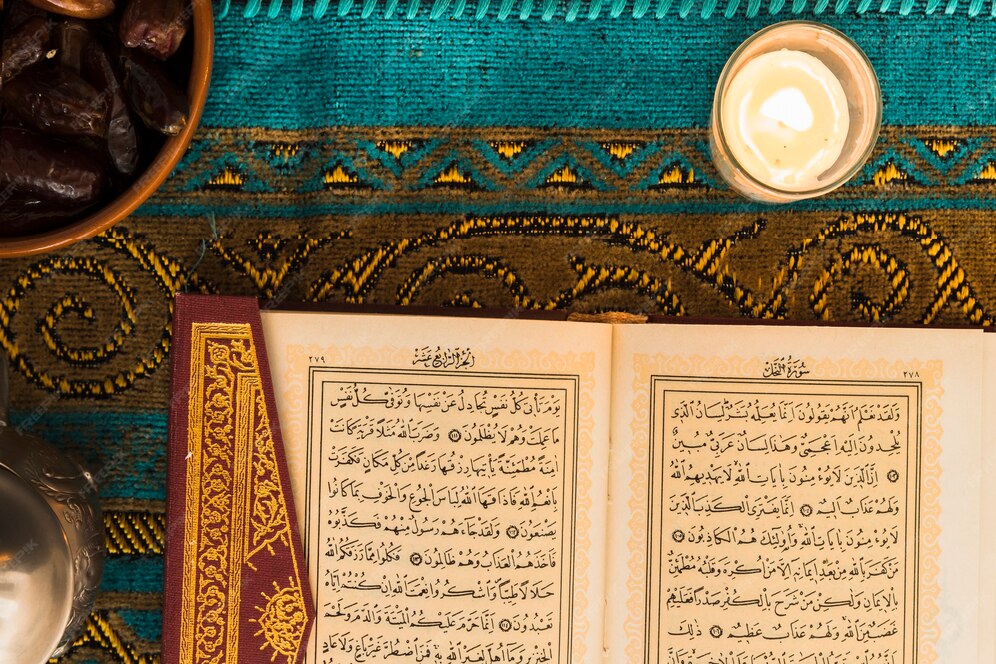 سُورَةُ النَّحْلِ ٢٧٨
وَلَقَدْ نَعْلَمُ أَنَّهُمْ يَقُولُونَ إِنَّمَا يُعَلِّمُهُ بَشَرٌ لِسَانُ الَّذِي
يُلْحِدُونَ إِلَيْهِ أَعْجَمِيٌّ وَهَذَا لِسَانٌ عَرَبِيٌّ مُبِينٌ
﴿١٠٣﴾ إِنَّ الَّذِينَ لَا يُؤْمِنُونَ بِآيَاتِ اللَّهِ لَا يَهْدِيهِمُ اللَّهُ
وَلَهُمْ عَذَابٌ أَلِيمٌ ﴿١٠٤﴾ إِنَّمَا يَفْتَرِي الْكَذِبَ الَّذِينَ
لَا يُؤْمِنُونَ بِآيَاتِ اللَّهِ وَأُولَئِكَ هُمُ الْكَاذِبُونَ ﴿١٠٥﴾
مَنْ كَفَرَ بِاللَّهِ مِنْ بَعْدِ إِيمَانِهِ إِلَّا مَنْ أُكْرِهَ وَقَلْبُهُ مُطْمَئِنٌّ
بِالْإِيمَانِ وَلَكِنْ مَنْ شَرَحَ بِالْكُفْرِ صَدْرًا فَعَلَيْهِمْ
غَضَبٌ مِنَ اللَّهِ وَلَهُمْ عَذَابٌ عَظِيمٌ ﴿١٠٦﴾ ذَلِكَ
الجُزْءُ الرَّابِعَ عَشَرَ ٢٧٩
يَوْمَ تَأْتِي كُلُّ نَفْسٍ تُجَادِلُ عَنْ نَفْسِهَا وَتُوَفَّى كُلُّ نَفْسٍ
مَا عَمِلَتْ وَهُمْ لَا يُظْلَمُونَ ﴿١١١﴾ وَضَرَبَ اللَّهُ مَثَلًا قَرْيَةً كَانَتْ
آمِنَةً مُطْمَئِنَّةً يَأْتِيهَا رِزْقُهَا رَغَدًا مِنْ كُلِّ مَكَانٍ فَكَفَرَتْ
بِأَنْعُمِ اللَّهِ فَأَذَاقَهَا اللَّهُ لِبَاسَ الْجُوعِ وَالْخَوْفِ بِمَا كَانُوا
يَصْنَعُونَ ﴿١١٢﴾ وَلَقَدْ جَاءَهُمْ رَسُولٌ مِنْهُمْ فَكَذَّبُوهُ
فَأَخَذَهُمُ الْعَذَابُ وَهُمْ ظَالِمُونَ ﴿١١٣﴾ فَكُلُوا مِمَّا رَزَقَكُمُ اللَّهُ
حَلَالًا طَيِّبًا وَاشْكُرُوا نِعْمَتَ اللَّهِ إِنْ كُنْتُمْ إِيَّاهُ
تَعْبُدُونَ ﴿١١٤﴾ إِنَّمَا حَرَّمَ عَلَيْكُمُ الْمَيْتَةَ وَالدَّمَ وَلَحْمَ
الْخِنْزِيرِ وَمَا أُهِلَّ لِغَيْرِ اللَّهِ بِهِ فَمَنِ اضْطُرَّ غَيْرَ بَاغٍ وَلَا عَادٍ